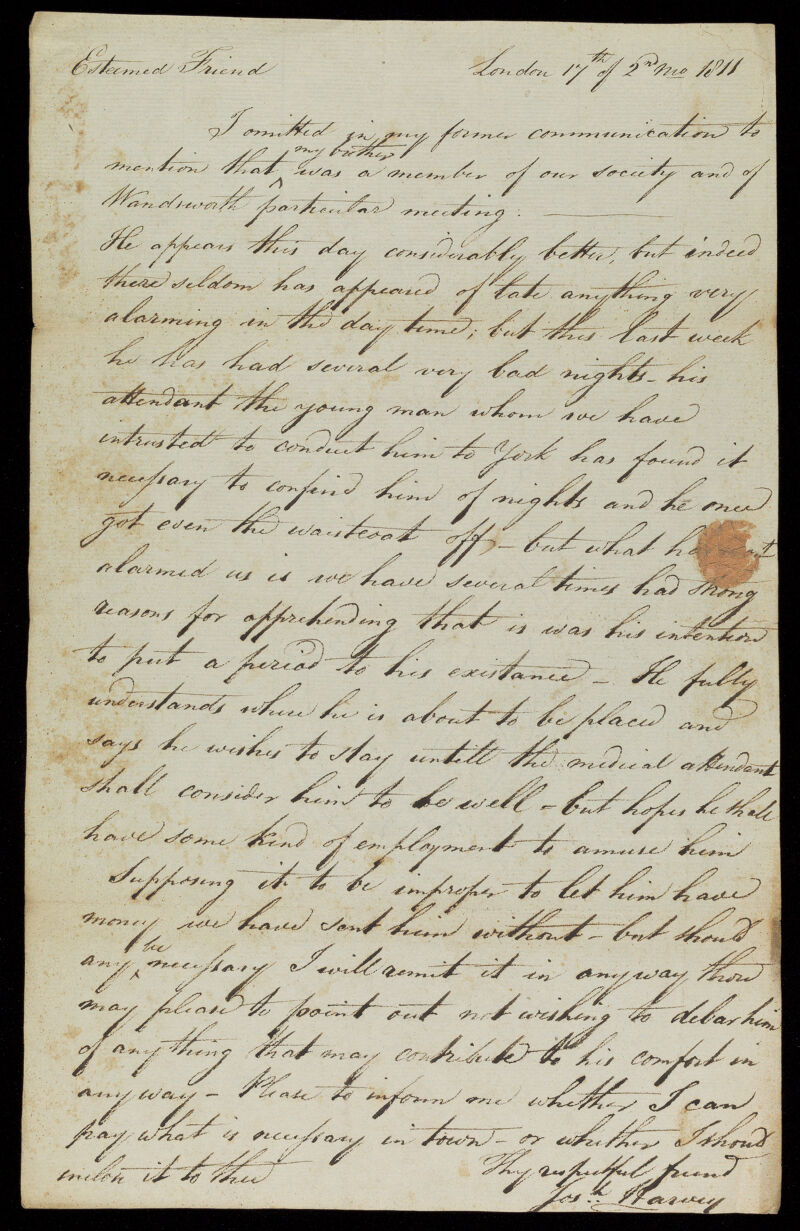 Esteemed Friend London 17th of 2nd mo 1811
I omitted in my former communication to
mention that ^ my brother was a member of our society and of
Wandsworth particular meeting.
He appears this day considerably better, but indeed
there seldom has appeared of late anything very
alarming in the day time; but this last week
he has had several very bad nights - his
attendant the young man whom we have
intrusted to conduct him to York has found it
necessary to confind him of nights and he once
got even the waistcoat off - but what has most
alarmed us is we have several times had strong
reasons for apprehending that is was his intention
to put a period to his existance - He fully
understands where he is about to be placed and
says he wishes to stay untill the medical attendant
shall consider him to be well - but hopes he shall
have some kind of employment to amuse him
Supposing it to be improper to let him have
money we have sent him without - but should
any ^ be necessary I will remit it in any way thou
may please to point out not wishing to debar him
of anything that may contribute to his comfort in
any way - Please to inform me whether I can
pay what is necessary in town - or whether I should
it to thee Thy respectful friend
Josh Harvey